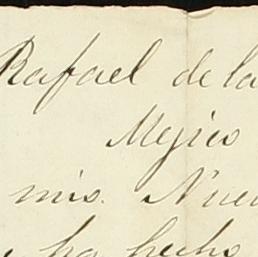 Rafael de la
Mejico
mio. Nue
ha hecho